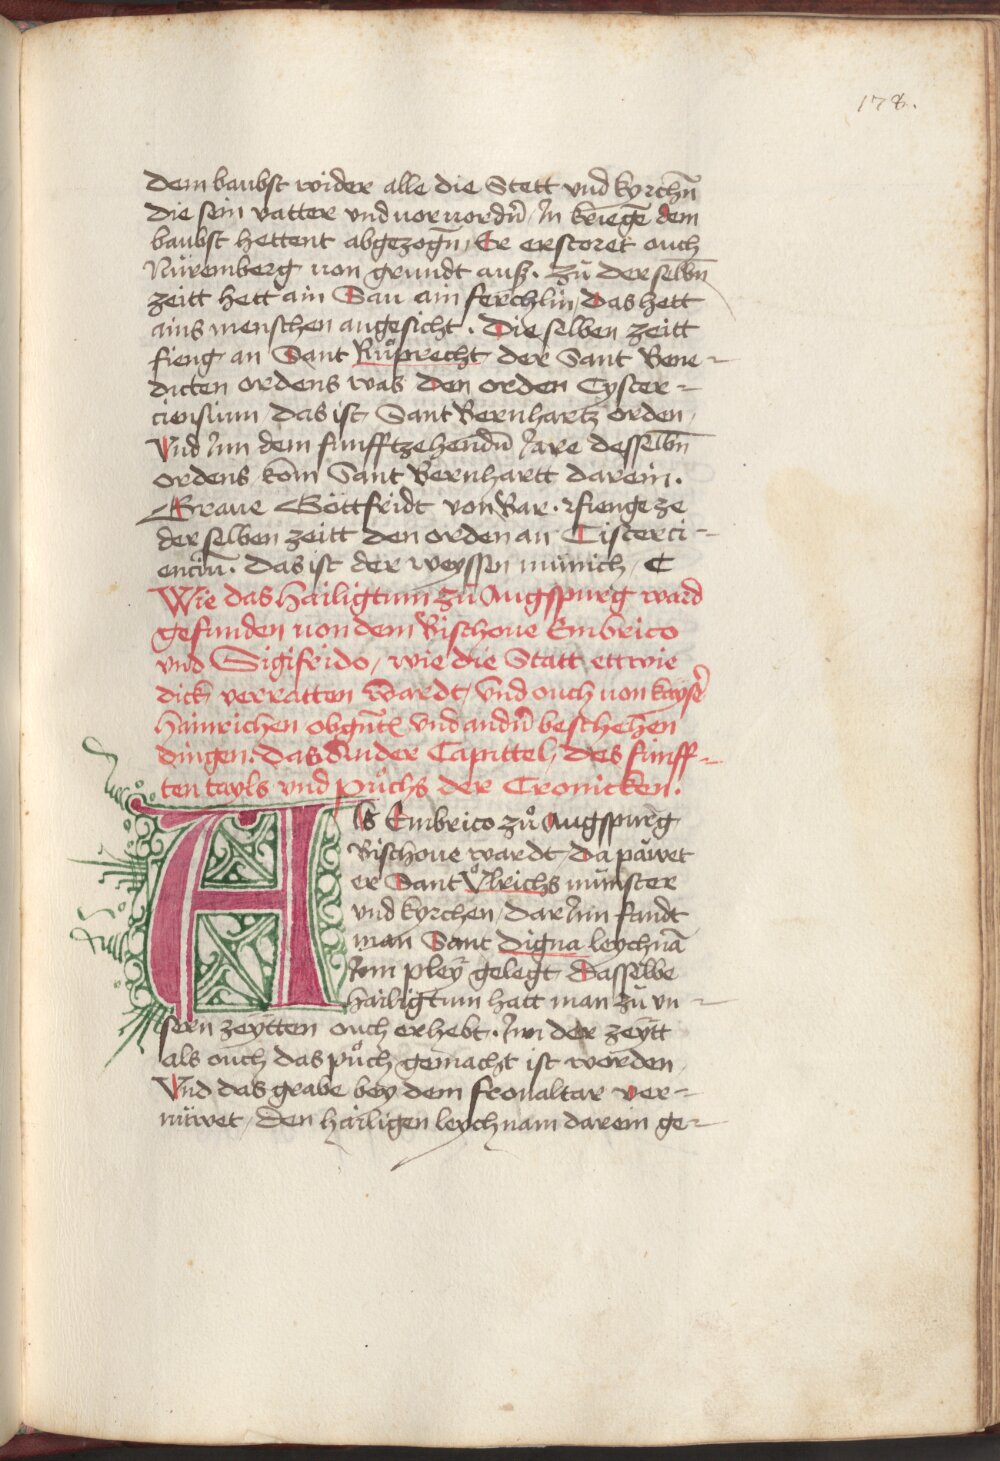 178.
dem baubst wider alle die Stett vnd kyrchn̄
die sein vatter vnd uor uordn̄ / In kriegē dem
baubst hettent abgezogn̄ / Er erstoret ouch
Nüremberg uon grundt auß . zů der selbn̄
zeitt hett ain Sau ain ferchlin̊ / Das hett
ains menschen angesicht . Die selben zeitt
fieng an Sant Růprecht der Sant Bene =
dicten ordens was Den orden Cyster =
ciensium das ist Sant Bernhartz orden /
Vnd Inn dem funfftzehendn̄ Jare desselbn̄
ordens kom̄ Sant Bernhartt darein .
Graue Göttfridt von Bar . fienge ze
der selben zeitt den orden an Cisterci =
enciū . Das ist der weyssen münich / C
Wie das Hailigtum zů Augspurg ward
gefunden uon dem Bischoue Embrico
vnd Sigifrido / wie die Statt ettwie
dick verratten wardt / vnd ouch uon kayser̄
Hainrichen obgn̄t vnd andn̄ beschehen
dingen . das Ander Capittel / des funff =
ten tayls vnd půchs der Cronicken .
Als Embrico zů Augspurg
Bischoue wardt / Da päwet
er Sant Vͦlrichs münster
vnd kyrchen / dar Inn fandt
man Sant Digna leychnā
Inn pleÿ gelegt Dasselbe
hailigtum hatt man zů vn =
sern zeytten ouch erhebt . Inn der zeÿtt
als ouch das půch gemacht ist worden /
Vnd das grabe bey dem fronaltar ver =
nüwet / den hailigen leychnam darein ge =